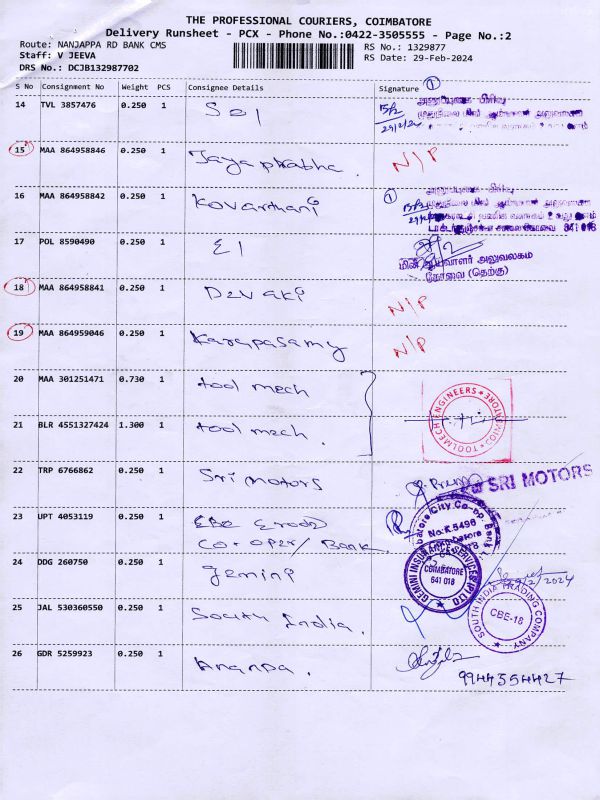 THE PROFESSIONAL COURIERS, COIMBATORE
Delivery Runsheet - PCX - Phone No.:0422-3505555 - Page No.:2
Route: NANJAPPA RD BANK CMS
RS No.: 1329877
Staff: V JEEVA
RS Date: 29-Feb-2024
DRS No.: DCJB132987702
S No Consignment No Weight PCS Consignee Details Signature 1
14 TVL 3857476 0.250 1
29/2/24
15 MAA 864958846 0.250 1 Jayaprabha. N/P
16 MAA 864958842 0.250 1 Kovarthani 1
641 018
17 POL 8590490 0.250 1 EI
அலுவலகம்
கோவை (தெற்கு)
18 MAA 864958841 0.250 1 Devaki N/P
19 MAA 864959046 0.250 1 Karapasamy N/P
20 MAA 301251471 0.730 1 tool mech
TOOLMECH ENGINEERS COIMBATORE
21 BLR 4551327424 1.300 1 tool mech.
22 TRP 6766862 0.250 1 Sri Motors
For SRI MOTORS
23 UPT 4053119 0.250 1 EBE Erode
Co-oper/ Bank
24 DDG 260750 0.250 1 Gemini
GEMINI INSURANCE SERVICES (P) LTD
COIMBATORE
641 018
25 JAL 530360550 0.250 1 South India.
SOUTH INDIA TRADING COMPANY
CBE-18
26 GDR 5259923 0.250 1 Ananda.
9944354427